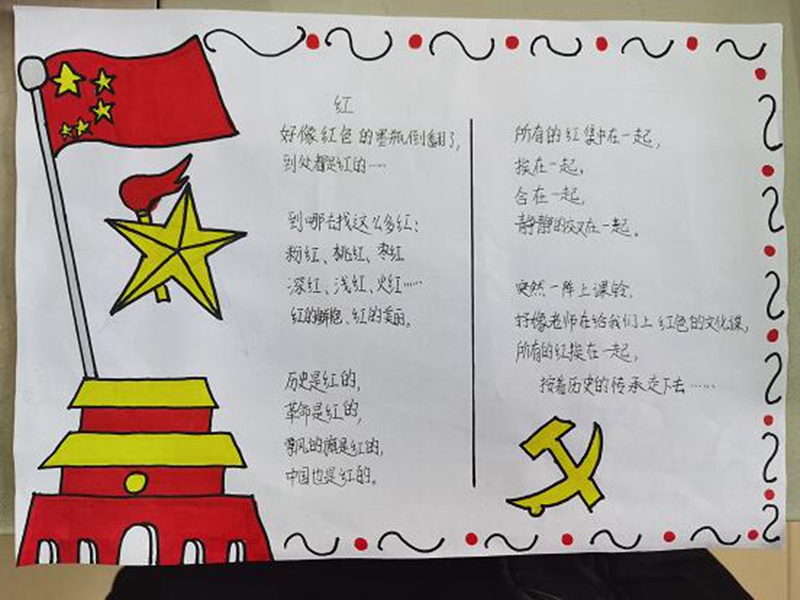 红
好像红色的墨瓶倒翻了，
到处都是红的……
到哪去找这么多红：
粉红、桃红、枣红
深红、浅红、火红……
红的鲜艳、红的美丽。
历史是红的，
革命是红的，
的旗是红的，
中国也是红的。
所有的红集中在一起，
挨在一起，
合在一起，
静静的交叉在一起。
突然一阵上课铃，
好像老师在给我们上红色的文化课，
所有的红挨在一起，
按着历史的传承走下去……